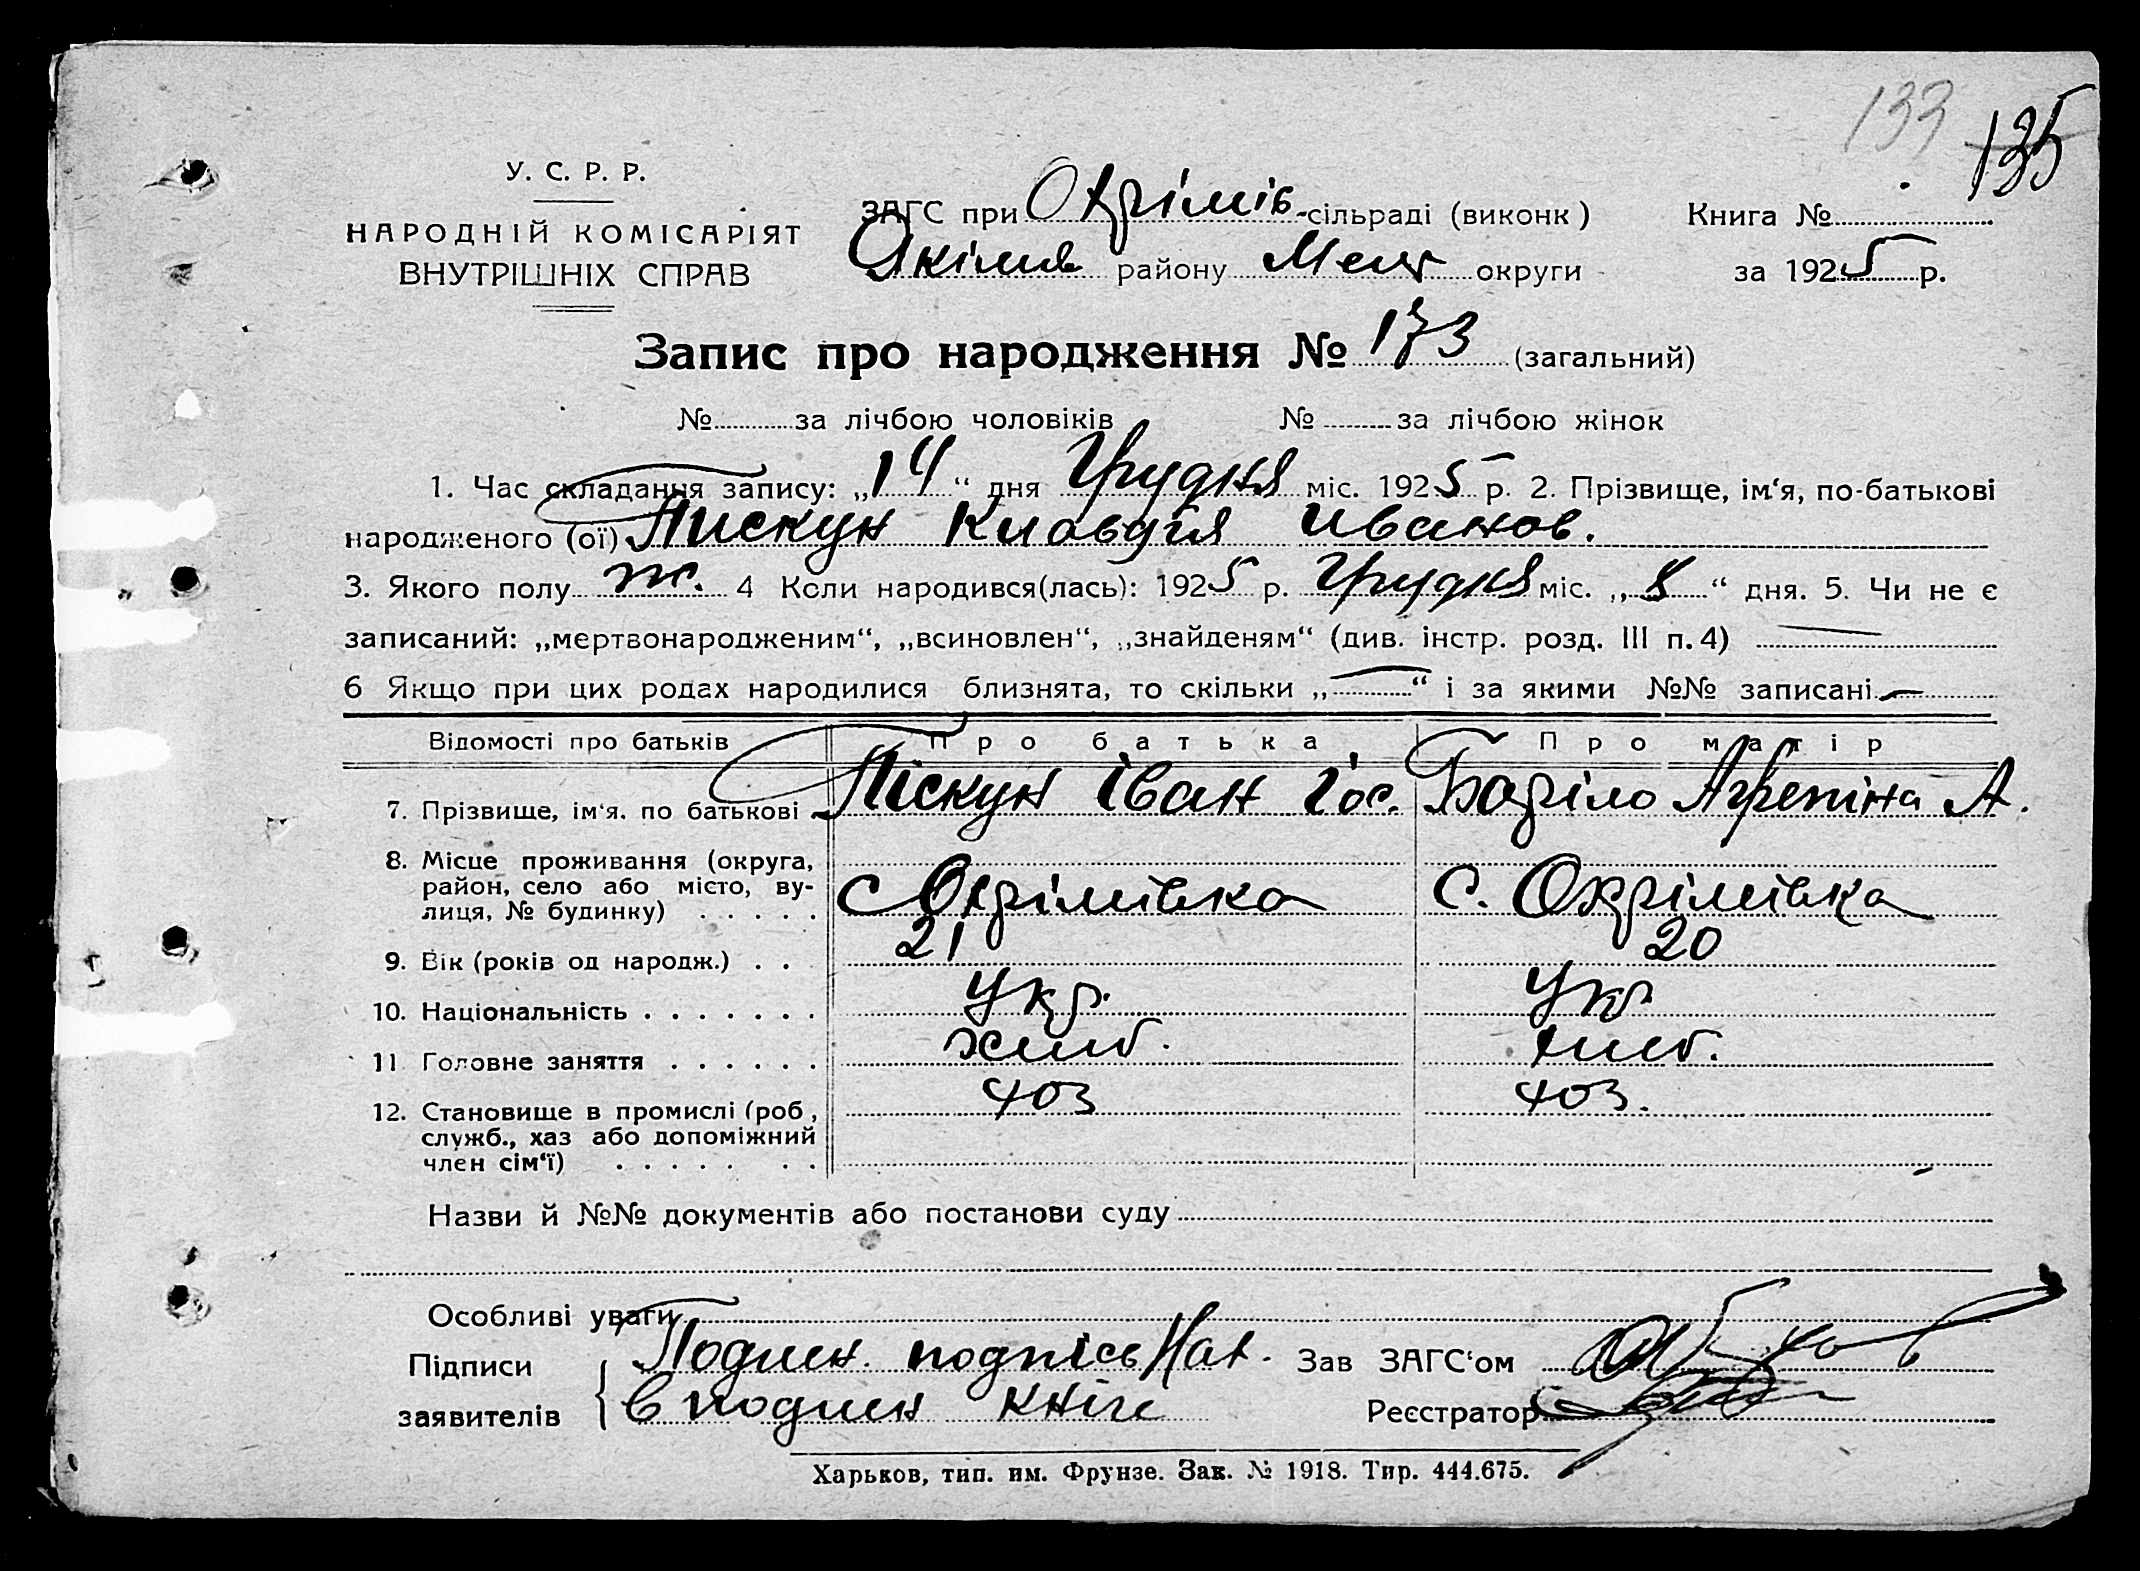 133 135
У. С. Р. Р.
НАРОДНІЙ КОМІСАРІЯТ
ВНУТРІШНІХ СПРАВ
ЗАГС при Охрімів-сільраді (виконк) Книга №
Якімів району Мелт округи за 1925 р.
Запис про народження № 173 (загальний)
№ за лічбою чоловіків № за лічбою жінок
1. Час складання запису: „14“ дня Грудня міс. 1925 р. 2. Прізвище, ім‘я, по-батькові
народженого (ої) Пискун Клавдія Иванов.
3. Якого полу ж. 4 Коли народився(лась): 1925 р. Грудня міс. „8“ дня. 5. Чи не є
записаний: „мертвонародженим“, „всиновлен“, „знайденям“ (див. інстр. розд. III п. 4) —
6 Якщо при цих родах народилися близнята, то скільки „—“ і за якими №№ записані —
Відомості про батьків Про батька Про матір
7. Прізвище, ім‘я. по батькові Піскун Іван Іос. Боріло Агрепіна А.
8. Місце проживання (округа,
район, село або місто, ву-
лиця, № будинку) . . . . . с Охрімівка С. Охрімівка
9. Вік (років од народж.) . . 21 20
10. Національність . . . . . . . Укр. Укр
11 Головне заняття . . . . . . хліб. хліб.
12. Становище в промислі (роб, 403 403.
служб., хаз або допоміжний
член сім‘ї) . . . . . . .
Назви й №№ документів або постанови суду
Особливі уваги
Підписи Подлен. подпісь Нах. Зав ЗАГС‘ом
заявителів в подлен кнігі Реєстратор
Харьков, тип. им. Фрунзе. Зак. № 1918. Тир. 444.675.